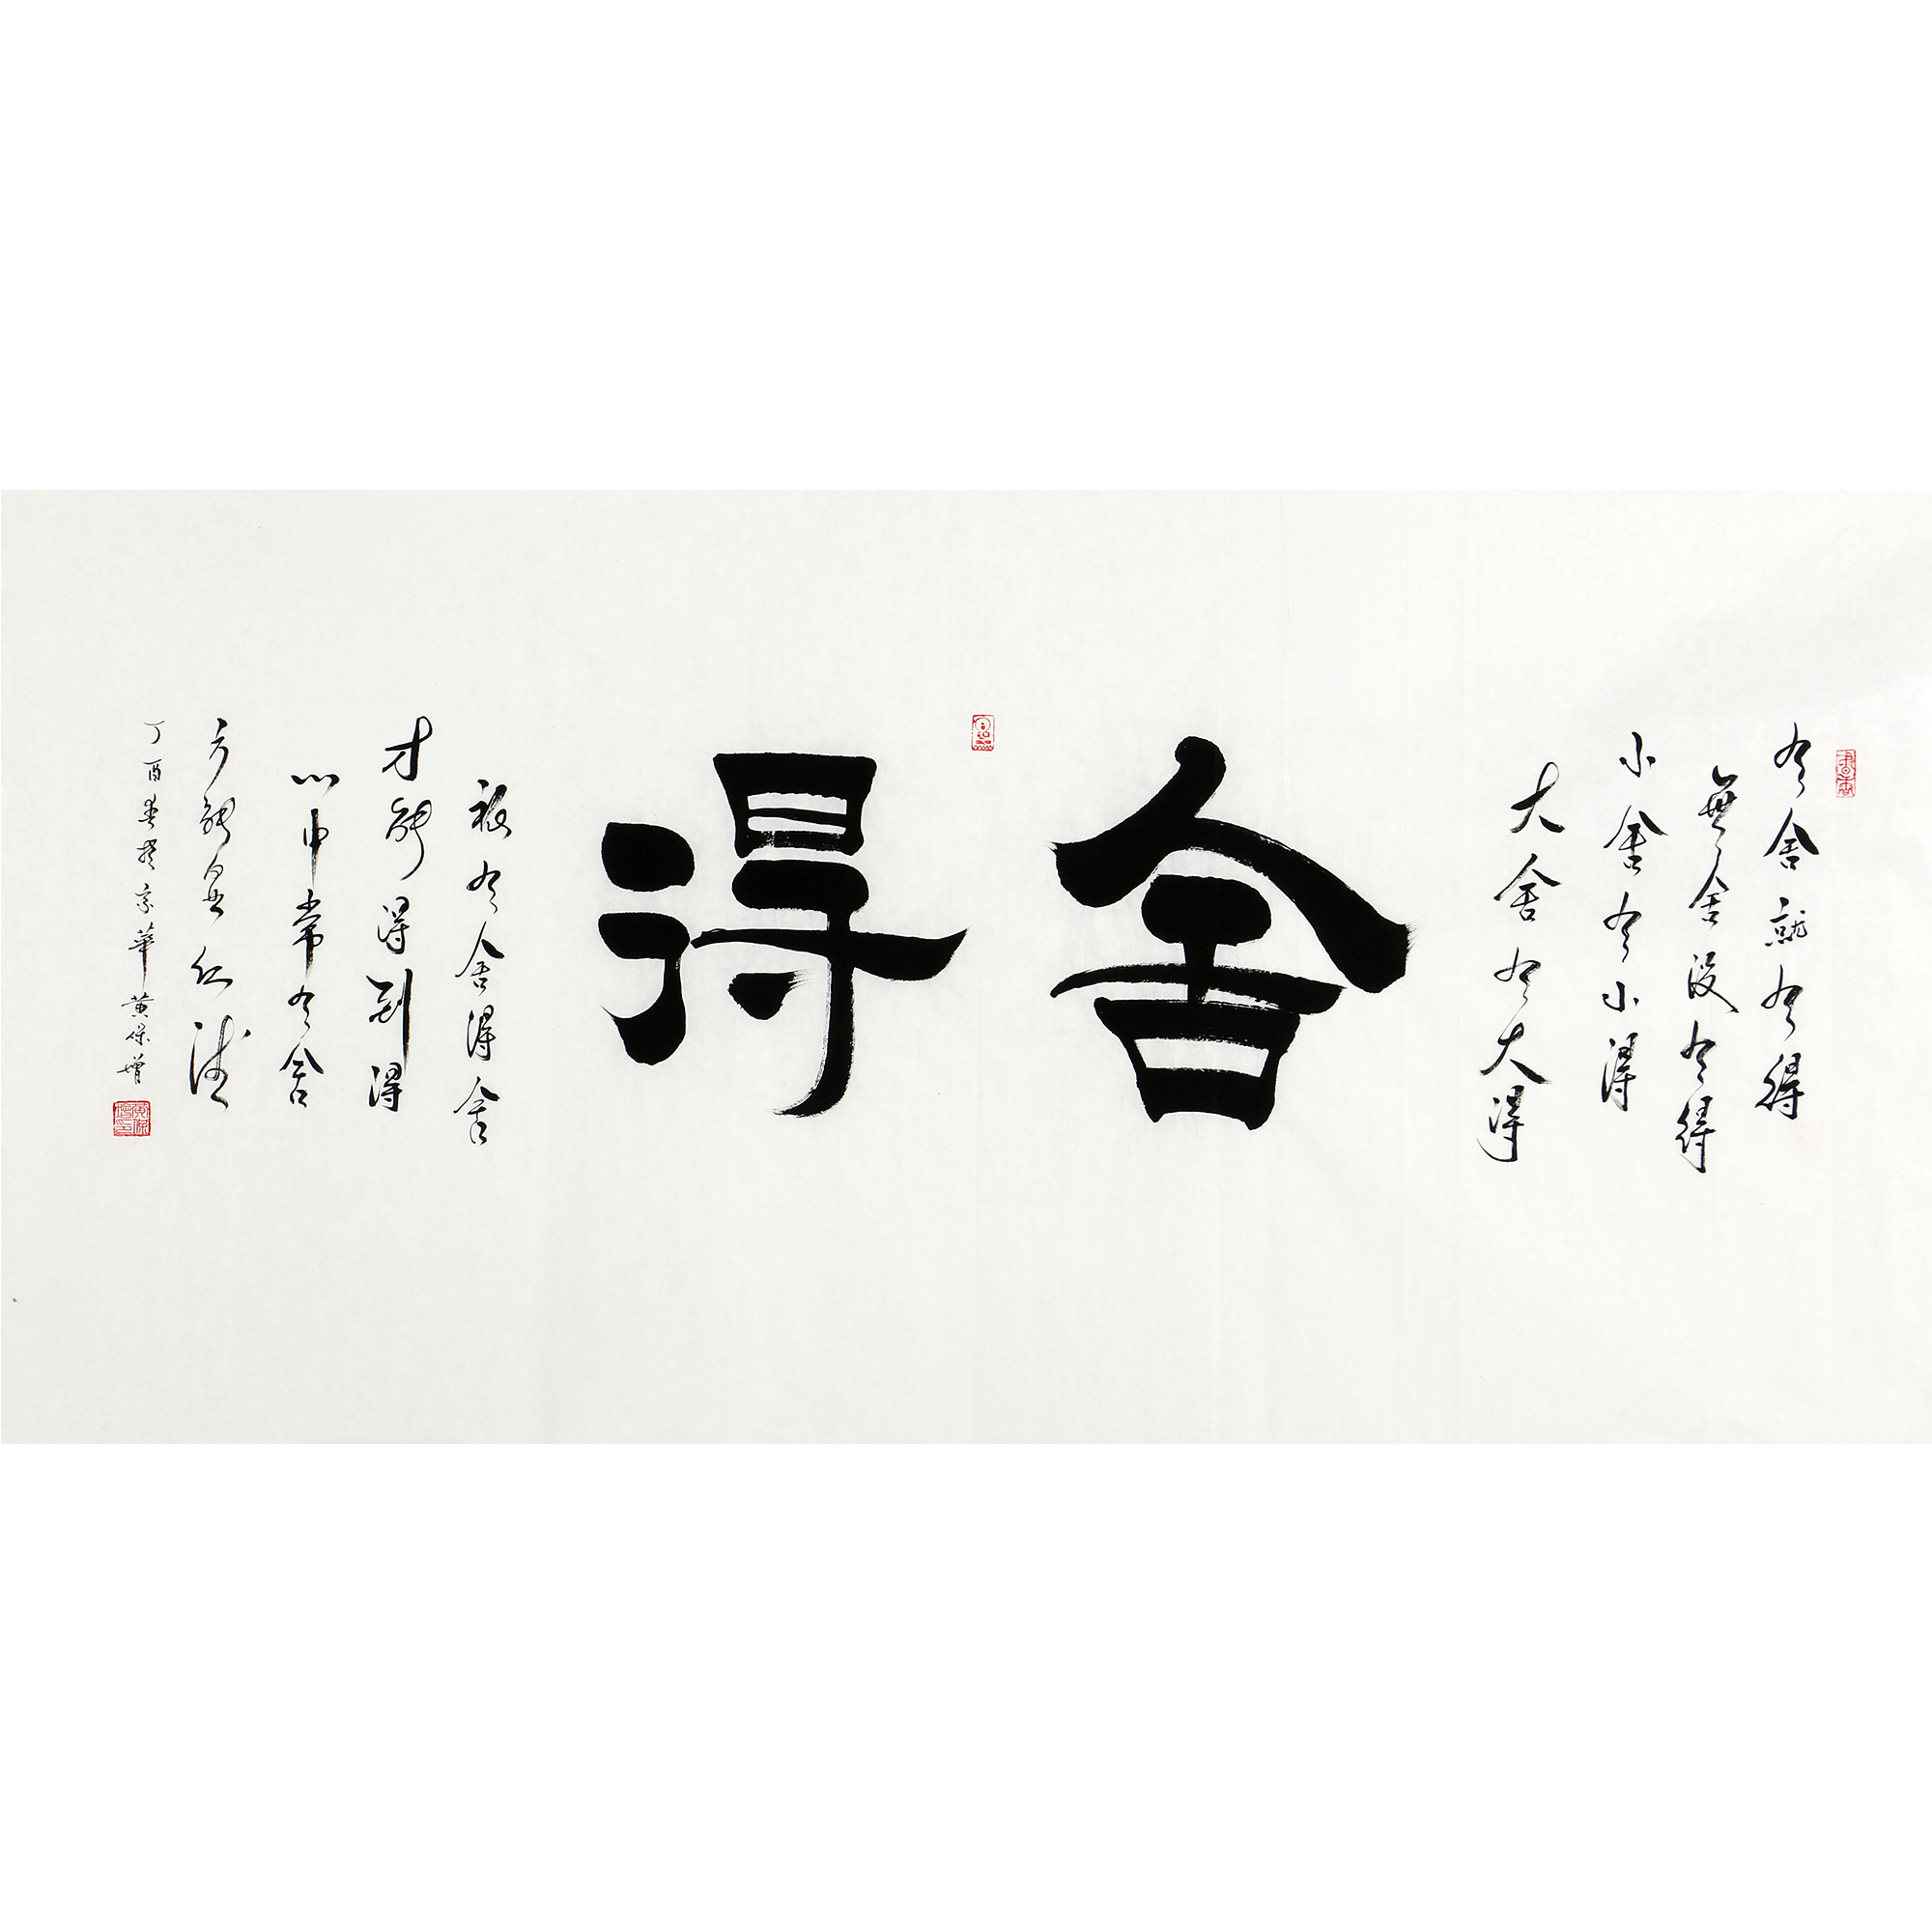 有舍就有得
無舍没有得
小舍有小得
大舍有大得
舍得
祗有舍得舍
才能得到得
心中常有舍
方能 仁德
丁酉春 京華黄保增